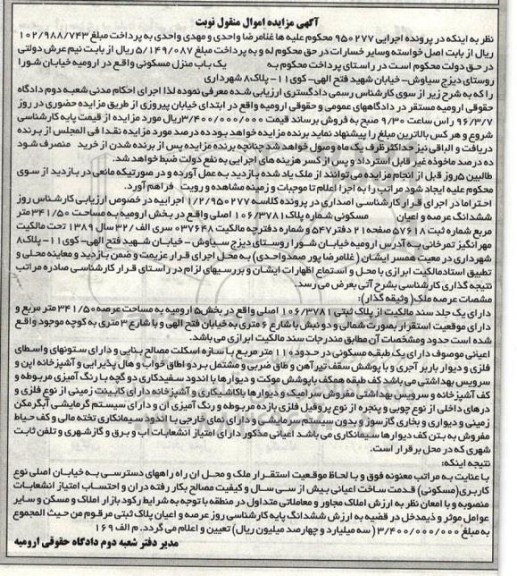 آگهی مزایده اموال منقول نوبت
نظر به اینکه در پرونده اجرایی ۹۵۰۲۷۷ محکوم علیه ها غلامرضا واحدی و مهدی واحدی به پرداخت مبلغ ۱۰۲/۹۸۸/۷۴۳
ریال از بابت اصل خواسته وسایر خسارات در حق محکوم له و به پرداخت مبلغ ۵/۱۴۹/۰۸۷ ریال از بابت نیم عرش دولتی
در حق دولت محکوم است در راستای پرداخت محکوم به یک باب منزل مسکونی واقع در ارومیه خیابان شورا
روستای دیزج سیاوش- خیابان شهید فتح الهی- کوی۱۱- پلاک۸ شهرداری
را که به شرح زیر از سوی کارشناس رسمی دادگستری ارزیابی شده معرفی نموده لذا اجرای احکام مدنی شعبه دوم دادگاه
حقوقی ارومیه مستقر در دادگاههای عمومی و حقوقی ارومیه واقع در ابتدای خیابان پیروزی از طریق مزایده حضوری در روز
۹۶/۳/۷ راس ساعت ۹/۳۰ صبح به فروش برساند قیمت ۳/۴۰۰/۰۰۰/۰۰۰ریال مورد مزایده از قیمت پایه کارشناسی
شروع و هر کس بالاترین مبلغ را پیشنهاد نماید برنده مزایده خواهد بود ده درصد مورد مزایده نقدا فی المجلس از برنده
دریافت و الباقی نیز حداکثر ظرف یک ماه وصول خواهد شد چنانچه برنده مزایده پس از برنده شدن از خرید منصرف شود
ده درصد ماخوذه غیر قابل استرداد و پس از کسر هزینه های اجرایی به نفع دولت ضبط خواهد شد.
طالبین ۵روز قبل از انجام مزایده می توانند از ملک یاد شده بازدید به عمل آورده و در صورتیکه مانعی در بازدید از سوی
محکوم علیه ایجاد شود مراتب را به اجرا اعلام تا موجبات و زمینه مشاهده و رویت فراهم آورد.
احتراما در اجرای قرار کارشناسی اصداری در پرونده کلاسه ۱/۲/۹۵۰۲۷۷ اجراییه در خصوص ارزیابی کارشناس روز
ششدانگ عرصه و اعیان مسکونی شماره پلاک۱۰۶/۳۷۸۱ اصلی واقع در بخش ارومیه به مساحت ۳۴۱/۵۰ متر
مربع شماره ثبت ۵۷۶۱۸ صفحه ۲۱ دفتر ۵۴۷ و شماره دفترچه مالکیت ۰۳۷۶۴۸ سری الف /۳۲ سال ۱۳۸۹ تحت مالکیت
مهرانگیز تمرخانی به آدرس ارومیه خیابان شورا روستای دیزج سیاوش - خیابان شهید فتح الهی- کوی۱۱- پلاک۸
شهرداری در معیت همسر ایشان (غلامرضا پور صمدواحدی) به محل اجرای قرار عزیمت و ضمن بازدید و معاینه محلی و
تطبیق اسنادمالکیت ابرازی با محل و استماع اظهارات ایشان و بررسیهای لازم در راستای قرار کارشناسی صادره مراتب
نتیجه گذاری کارشناسی بشرح آتی بعرض می رسد.
مشخصات عرصه ملک( وثیقه گذار):
دارای یک جلد سند مالکیت از پلاک ثبتی ۱۰۶/۳۷۸۱ اصلی واقع در بخش۵ ارومیه به مساحت عرصه ۳۴۱/۵۰ متر مربع و
دارای موقعیت استقرار بصورت شمالی و دو نبش با شارع ۶ متری به خیابان فتح الهی و با شارع ۳ متری به کوچه موجود واقع
شده است حدود ومشخصات آن مطابق مندرجات سند مالکیت ابرازی می باشد.
اعیانی موصوف دارای یک طبقه مسکونی در حدود ۱۱۰ متر مربع با سازه اسکلت مصالح بنایی و دارای ستونهای واسطای
فلزی و دیوار باربر آجری و با پوشش سقف تیرآهن و طاق ضربی و مشتمل بر دو اطاق خواب و هال پذیرایی و آشپزخانه اپن و
سرویس بهداشتی می باشد کف طبقه همکف با پوشش موکت و دیوارها با اندود سفیدکاری دو گچه با رنگ آمیزی مربوطه و
کف آشپزخانه و سرویس بهداشتی مفروش سرامیک و دیوارها باکاشیکاری و آشپزخانه دارای کابینت زمینی از نوع فلزی و
درهای داخلی از نوع چوبی و پنجره از نوع پروفیل فلزی بازده مربوطه و رنگ آمیزی آن و دارای سیستم گرمایشی آبگرمکن
زمینی و دیواری و بخاری گازسوز و بدون سیستم سرمایشی و دارای نمای خارجی با اندود سیمانکاری تخته مالی و کف حیاط
مفروش به بتن کف دیوارها سیمانکاری می باشد اعیانی مذکور دارای امتیاز انشعابات آب و برق و گازشهری و تلفن ثابت
شهری که در محل برقرار است.
نتیجه اینکه:
با عنایت به مراتب معنونه فوق و با لحاظ موقعیت استقرار ملک و محل ان راه راههای دسترسی به خیابان اصلی نوع
کاربری(مسکونی) قدمت ساخت اعیانی بیش از سی سال و کیفیت مصالح بکار رفته در ان و احتساب امتیاز انشعابات
منصوبه و با امعان نظر به ارزش املاک مجاور و معاملاتی متداول در منطقه با توجه به شرایط رکود بازار املاک و مسکن و سایر
عوامل موثر و ذیمدخل در قضیه به ارزش ششدانگ پایه کارشناسی روز عرصه و اعیان پلاک ثبتی مرقوم من حیث المجموع
به مبلغ ۳/۴۰۰/۰۰۰/۰۰۰ (سه میلیارد و چهارصد میلیون ریال) تعیین و اعلام می گردد. م الف ۱۶۹
مدیر دفتر شعبه دوم دادگاه حقوقی ارومیه